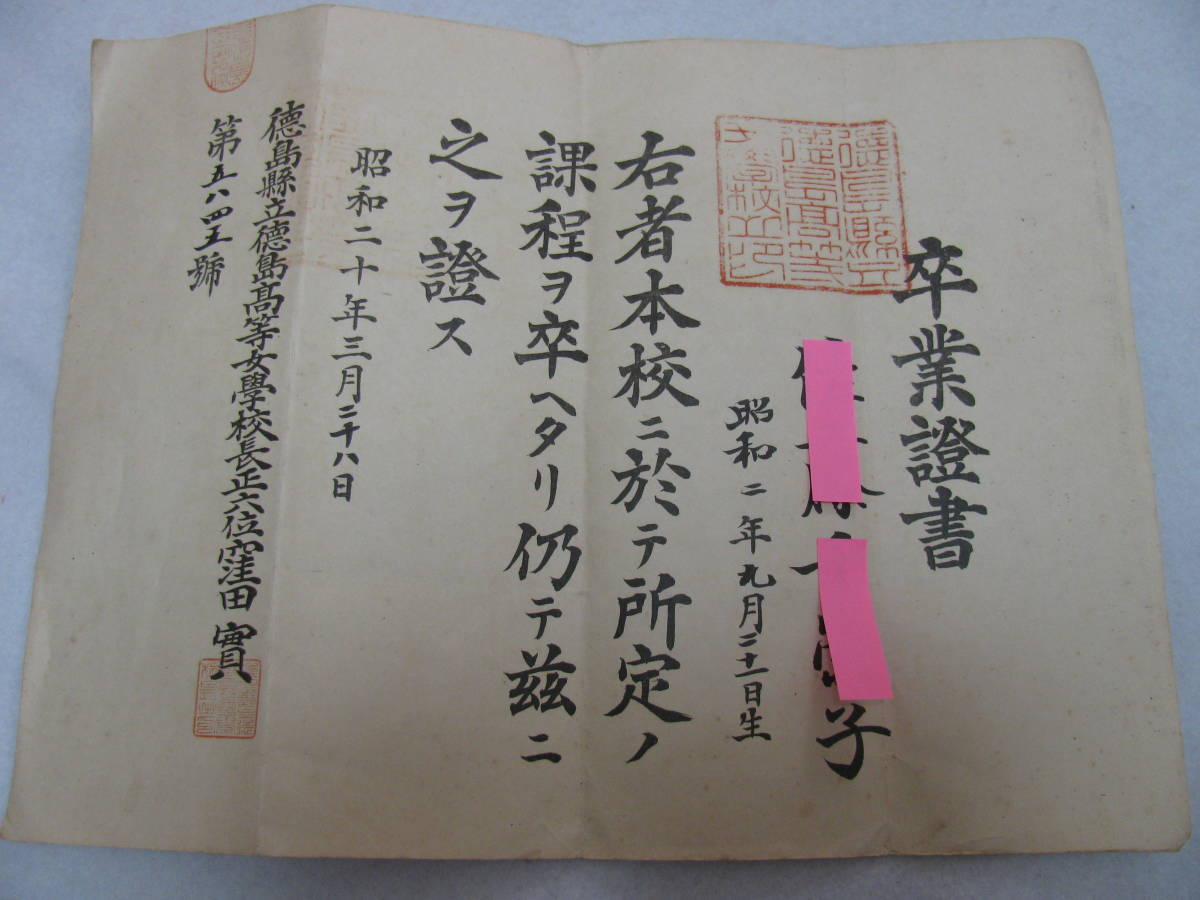 卒業證書
子
昭和二年九月二十一日生
右者本校ニ於テ所定ノ
課程ヲ卒ヘタリ仍テ茲ニ
之ヲ證ス
昭和二十年三月二十八日
德島縣立德島高等女學校長正六位窪田實
第五八四五號